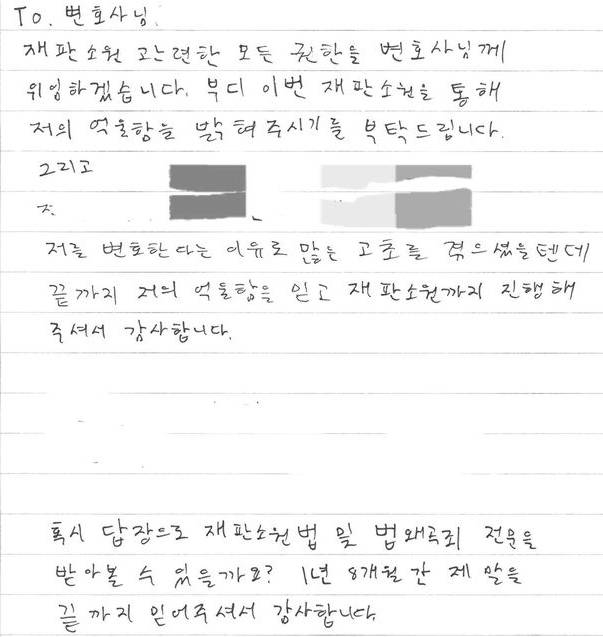 To. 변호사님.
재판소원 관련한 모든 권한을 변호사님께
위임하겠습니다. 부디 이번 재판소원을 통해
저의 억울함을 밝혀주시기를 부탁드립니다.
그리고
저를 변호한다는 이유로 많은 고초를 겪으셨을텐데
끝까지 저의 억울함을 믿고 재판소원까지 진행해
주셔서 감사합니다.
혹시 답장으로 재판소원법 및 법왜곡죄 전문을
받아볼 수 있을까요? 1년 8개월간 제 말을
끝까지 믿어주셔서 감사합니다.